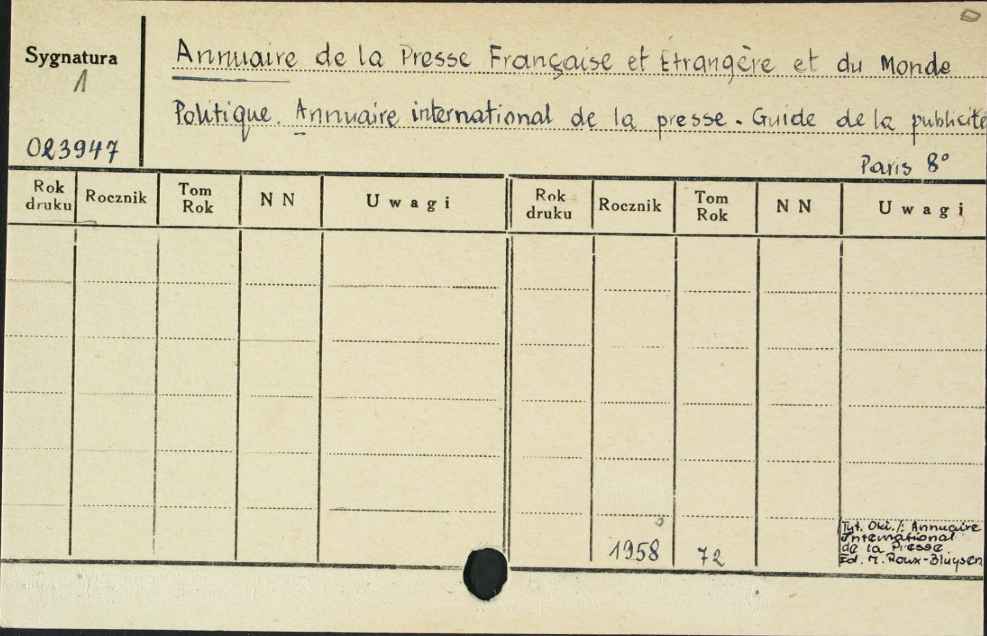 Sygnatura
1
023947
Annuaire de la Presse Française et Etrangère et du Monde
Politique. Annuaire international de la presse. Guide de la publicité
Paris 8°
Rok druku Rocznik Tom Rok NN Uwagi Rok druku Rocznik Tom Rok NN Uwagi
1958 72
Tyt. Okł.: Annuaire
International
de la Presse.
Ed. M. Roux-Bluysen